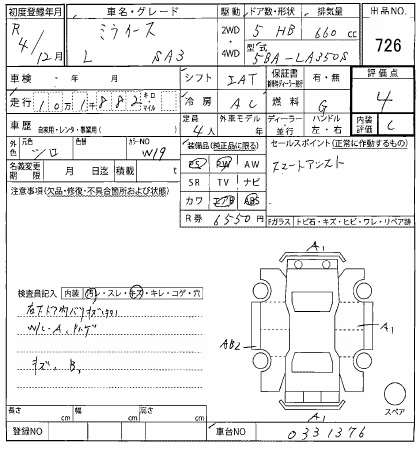 初度登録年月 車名・グレード 駆動 ドア数・形状 排気量 出品NO.
R 4/12月 ミライース L SA3 2WD・4WD 5 HB 660 cc 726
型式 5BA-LA350S
車検 年 月 シフト IAT 保証書 有・無 評価点
走行 10万1千882 キロ マイル 冷房 AC 燃料 G 4
車歴 自家用・レンタ・事業用( ) 定員 4人 外車モデル 年 ディーラー・並行 ハンドル 左・右 内装評価 C
外色 元色 シロ 色替 カラーNO W19
装備品(純正品に限る) セールスポイント(正常に作動するもの)
名義変更期限 月 日迄 積載 t PS PW AW スマートアシスト
注意事項(欠品・修復・不具合箇所および状態) SR TV ナビ
カワ エアB ABS
R券 6550円 Fガラス トビ石・キズ・ヒビ・ワレ・リペア跡
A1
検査員記入 内装 汚レ・スレ・キズ・キレ・コゲ・穴
W/C-A、ハゲ
A1
AB2
キズ、B、
スペア
A1
長さ cm 幅 cm 高さ cm
登録NO 車台NO 0331376